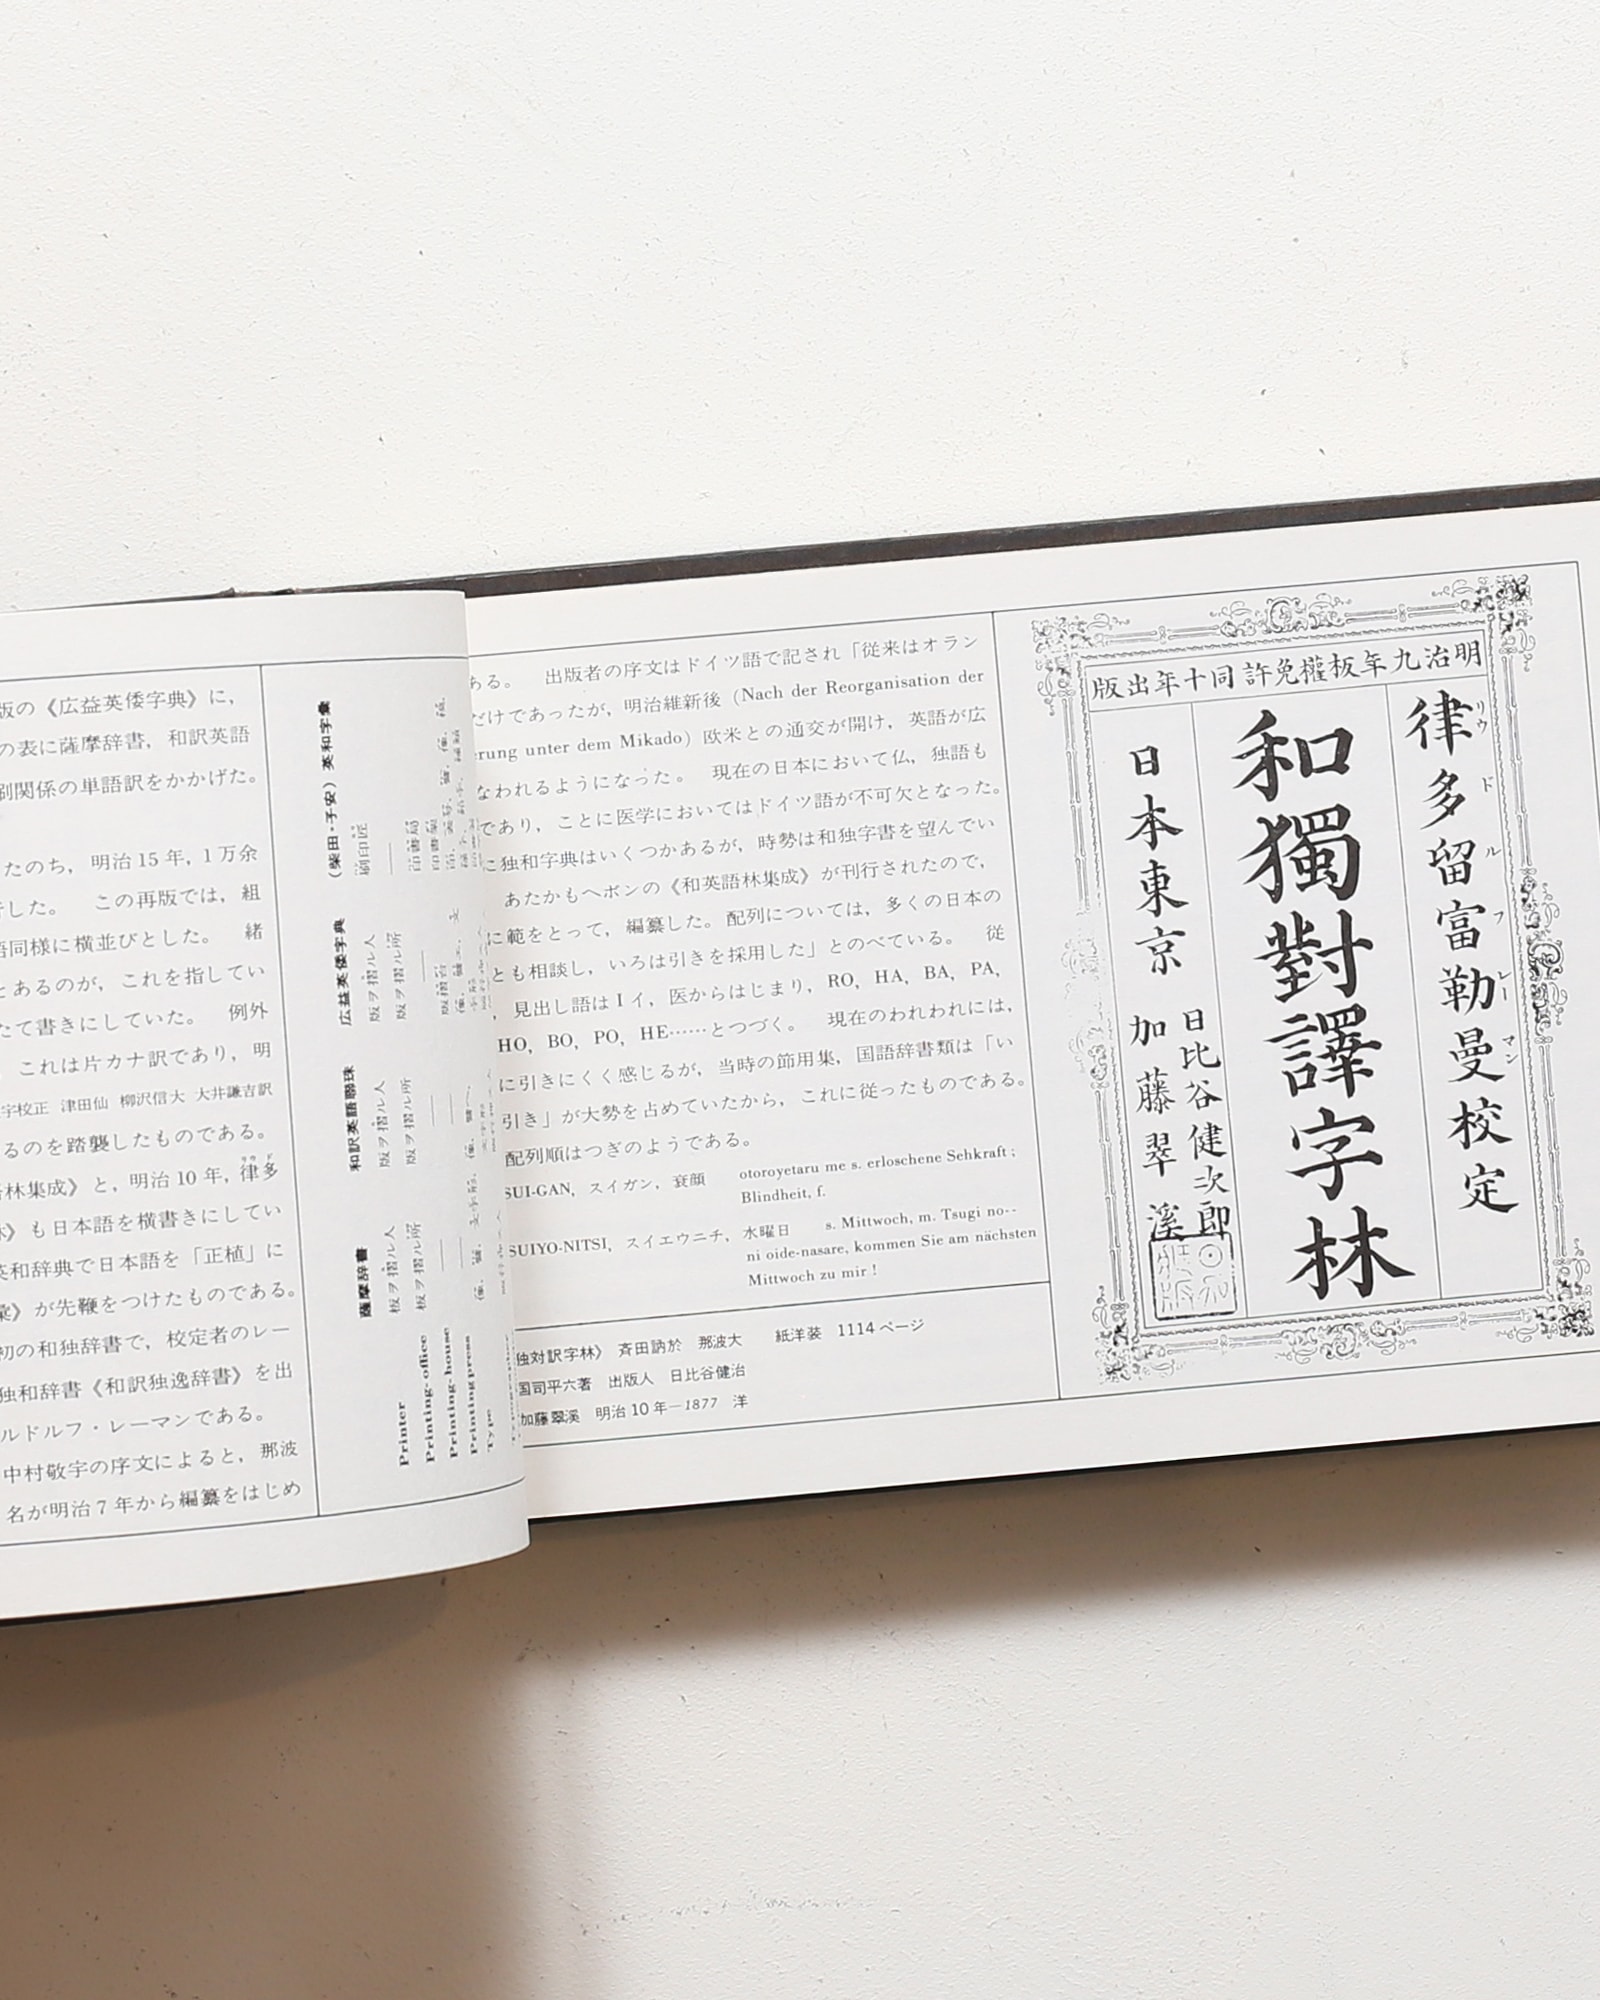 版の《広益英倭字典》に，
の表に薩摩辞書，和訳英語
刷関係の単語訳をかかげた。
たのち，明治15年，1万余
した。　この再版では，組
語同様に横並びとした。　緒
とあるのが，これを指してい
たて書きにしていた。　例外
これは片カナ訳であり，明
字校正　津田仙　柳沢信大　大井謙吉訳
るのを踏襲したものである。
語林集成》と，明治10年，律多
》も日本語を横書きにしてい
英和辞典で日本語を「正植」に
彙》が先鞭をつけたものである。
初の和独辞書で，校定者のレー
独和辞書《和訳独逸辞書》を出
ルドルフ・レーマンである。
中村敬宇の序文によると，那波
名が明治7年から編纂をはじめ
薩摩辞書　和訳英語聯珠　広益英倭字典　(柴田・子安)　英和字彙
Printer　板ヲ摺ル人　版ヲ摺ル人　版ヲ摺ル人　刷印匠
Printing-office　板ヲ摺ル所　版ヲ摺ル所　版ヲ摺ル所　——
Printing-house
Printing press
Type
ある。　出版者の序文はドイツ語で記され「従来はオラン
だけであったが，明治維新後（Nach der Reorganisation der
erung unter dem Mikado）欧米との通交が開け，英語が広
なわれるようになった。　現在の日本において仏，独語も
であり，ことに医学においてはドイツ語が不可欠となった。
に独和字典はいくつかあるが，時勢は和独字書を望んでい
あたかもヘボンの《和英語林集成》が刊行されたので，
に範をとって，編纂した。配列については，多くの日本の
とも相談し，いろは引きを採用した」とのべている。　従
，見出し語はIイ，医からはじまり，RO，HA，BA，PA，
HO，BO，PO，HE……とつづく。　現在のわれわれには，
に引きにくく感じるが，当時の節用集，国語辞書類は「い
引き」が大勢を占めていたから，これに従ったものである。
配列順はつぎのようである。
SUI-GAN，スイガン，衰顔　otoroyetaru me s. erloschene Sehkraft ;
Blindheit, f.
SUIYO-NITSI，スイエウニチ，水曜日　s. Mittwoch, m. Tsugi no--
ni oide-nasare, kommen Sie am nächsten
Mittwoch zu mir !
独対訳字林》　斉田訥於　那波大
国司平六著　出版人　日比谷健治
加藤翠溪　明治10年—1877　洋
紙洋装　1114ページ
明治九年板權免許同十年出版
律多留富勒曼校定
リウ ド ル フ レー マン
和獨對譯字林
日本東京
日比谷健次郎
加藤翠溪